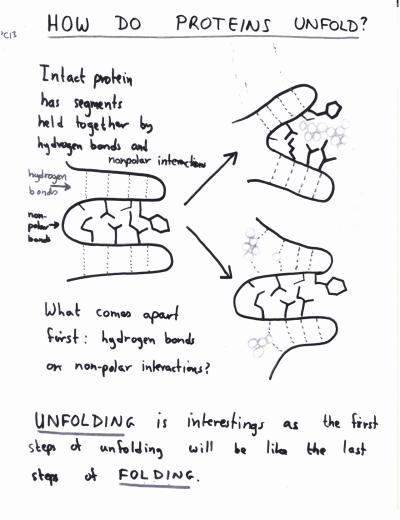 HOW DO PROTEINS UNFOLD?
Intact protein
has segments
held together by
hydrogen bonds and
nonpolar interactions
hydrogen
bonds
non-
polar
bonds
What comes apart
first: hydrogen bonds
or non-polar interactions?
UNFOLDING is interestings as the first
steps of unfolding will be like the last
steps of FOLDING.